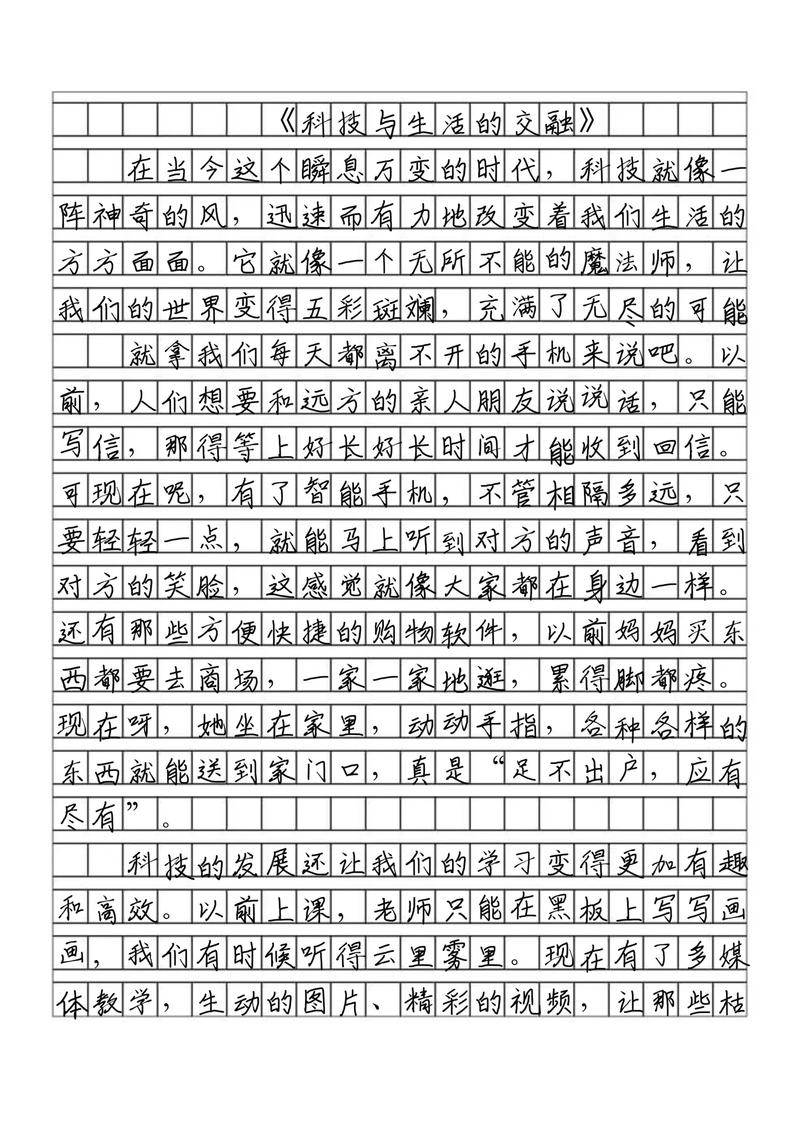 《科技与生活的交融》
在当今这个瞬息万变的时代，科技就像一
阵神奇的风，迅速而有力地改变着我们生活的
方方面面。它就像一个无所不能的魔法师，让
我们的世界变得五彩斑斓，充满了无尽的可能
就拿我们每天都离不开的手机来说吧。以
前，人们想要和远方的亲人朋友说说话，只能
写信，那得等上好长好长时间才能收到回信。
可现在呢，有了智能手机，不管相隔多远，只
要轻轻一点，就能马上听到对方的声音，看到
对方的笑脸，这感觉就像大家都在身边一样。
还有那些方便快捷的购物软件，以前妈妈买东
西都要去商场，一家一家地逛，累得脚都疼。
现在呀，她坐在家里，动动手指，各种各样的
东西就能送到家门口，真是“足不出户，应有
尽有”。
科技的发展还让我们的学习变得更加有趣
和高效。以前上课，老师只能在黑板上写写画
画，我们有时候听得云里雾里。现在有了多媒
体教学，生动的图片、精彩的视频，让那些枯